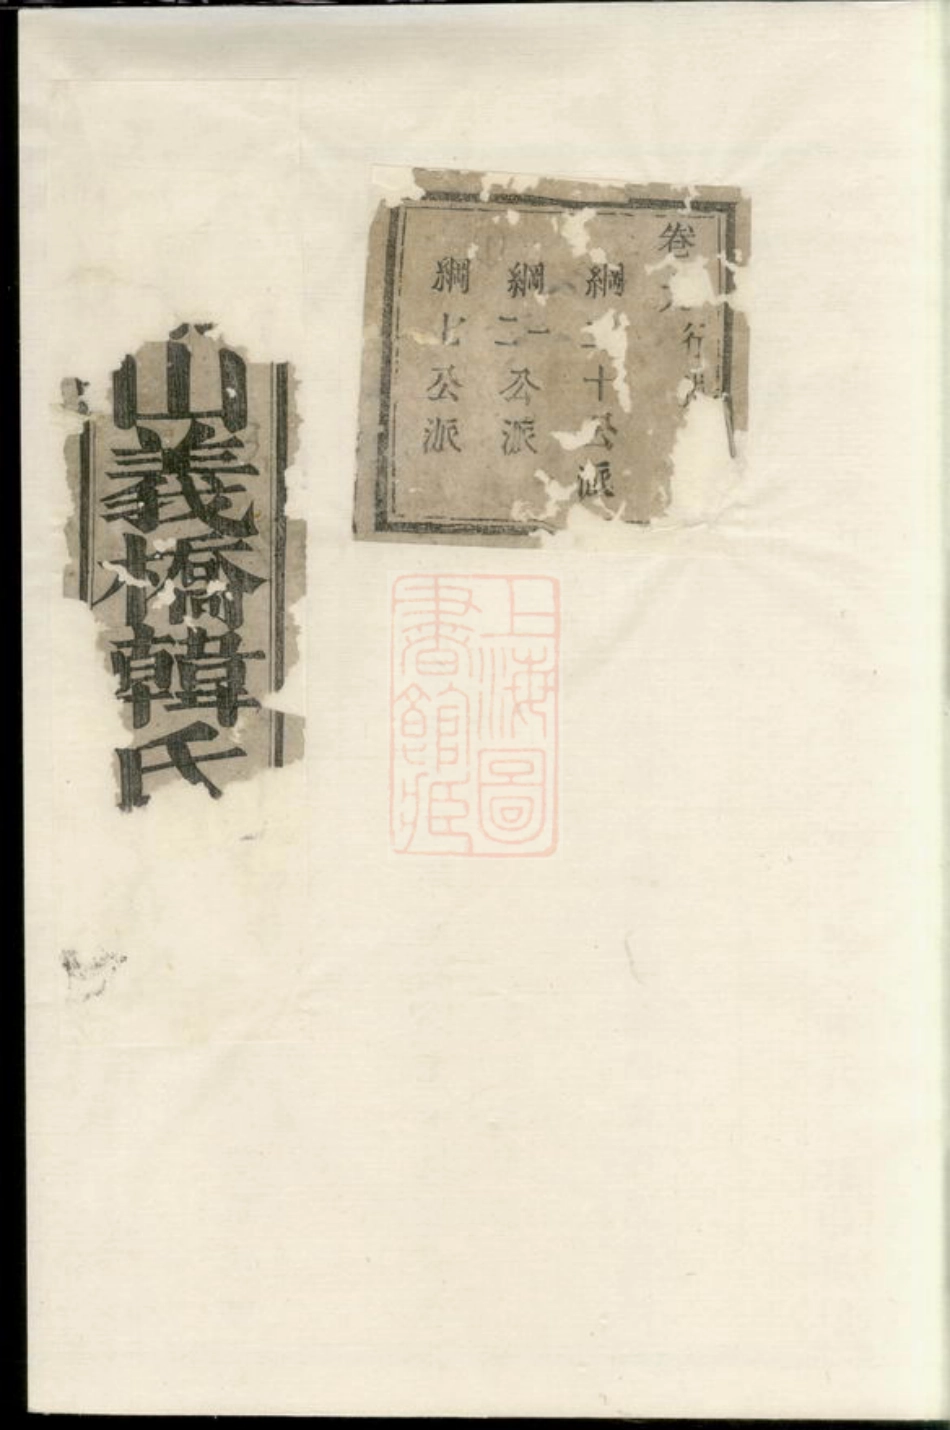 卷九
行派
綱二十公派
綱二一公派
綱七公派
山義橋韓氏
上海圖書館藏